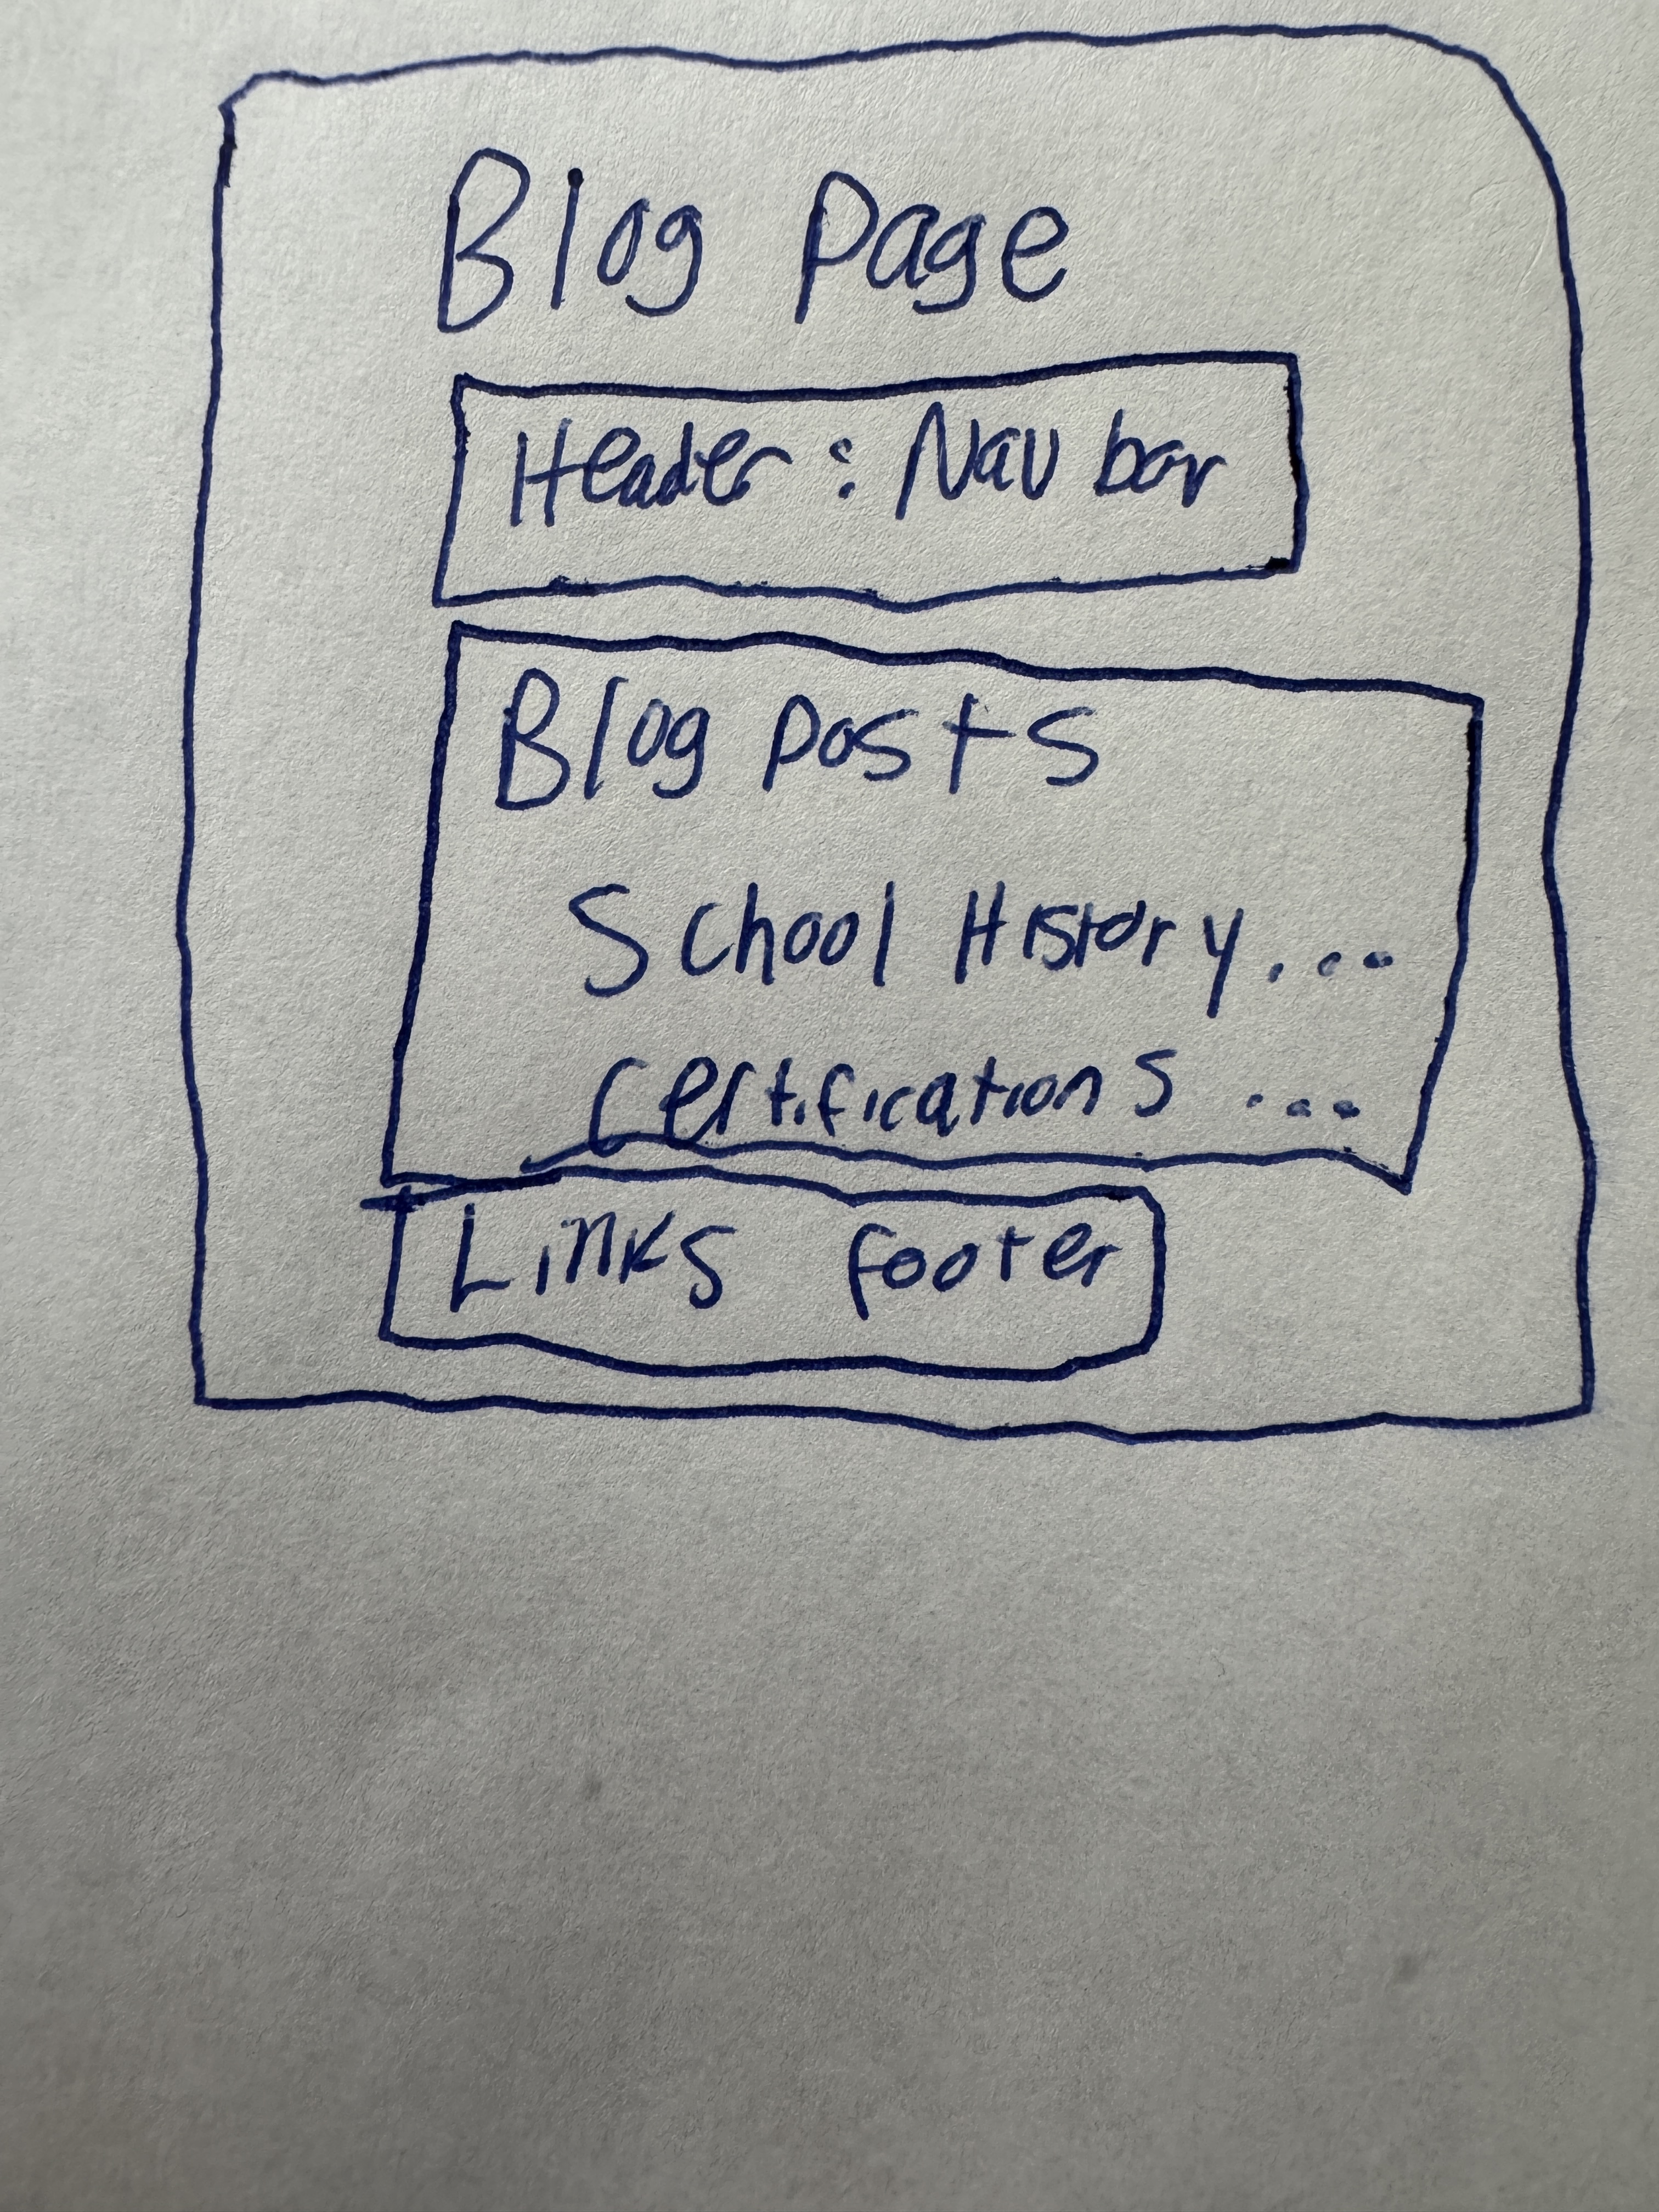 Blog Page
Header: Nav bar
Blog posts
School History....
Certifications ....
Links footer